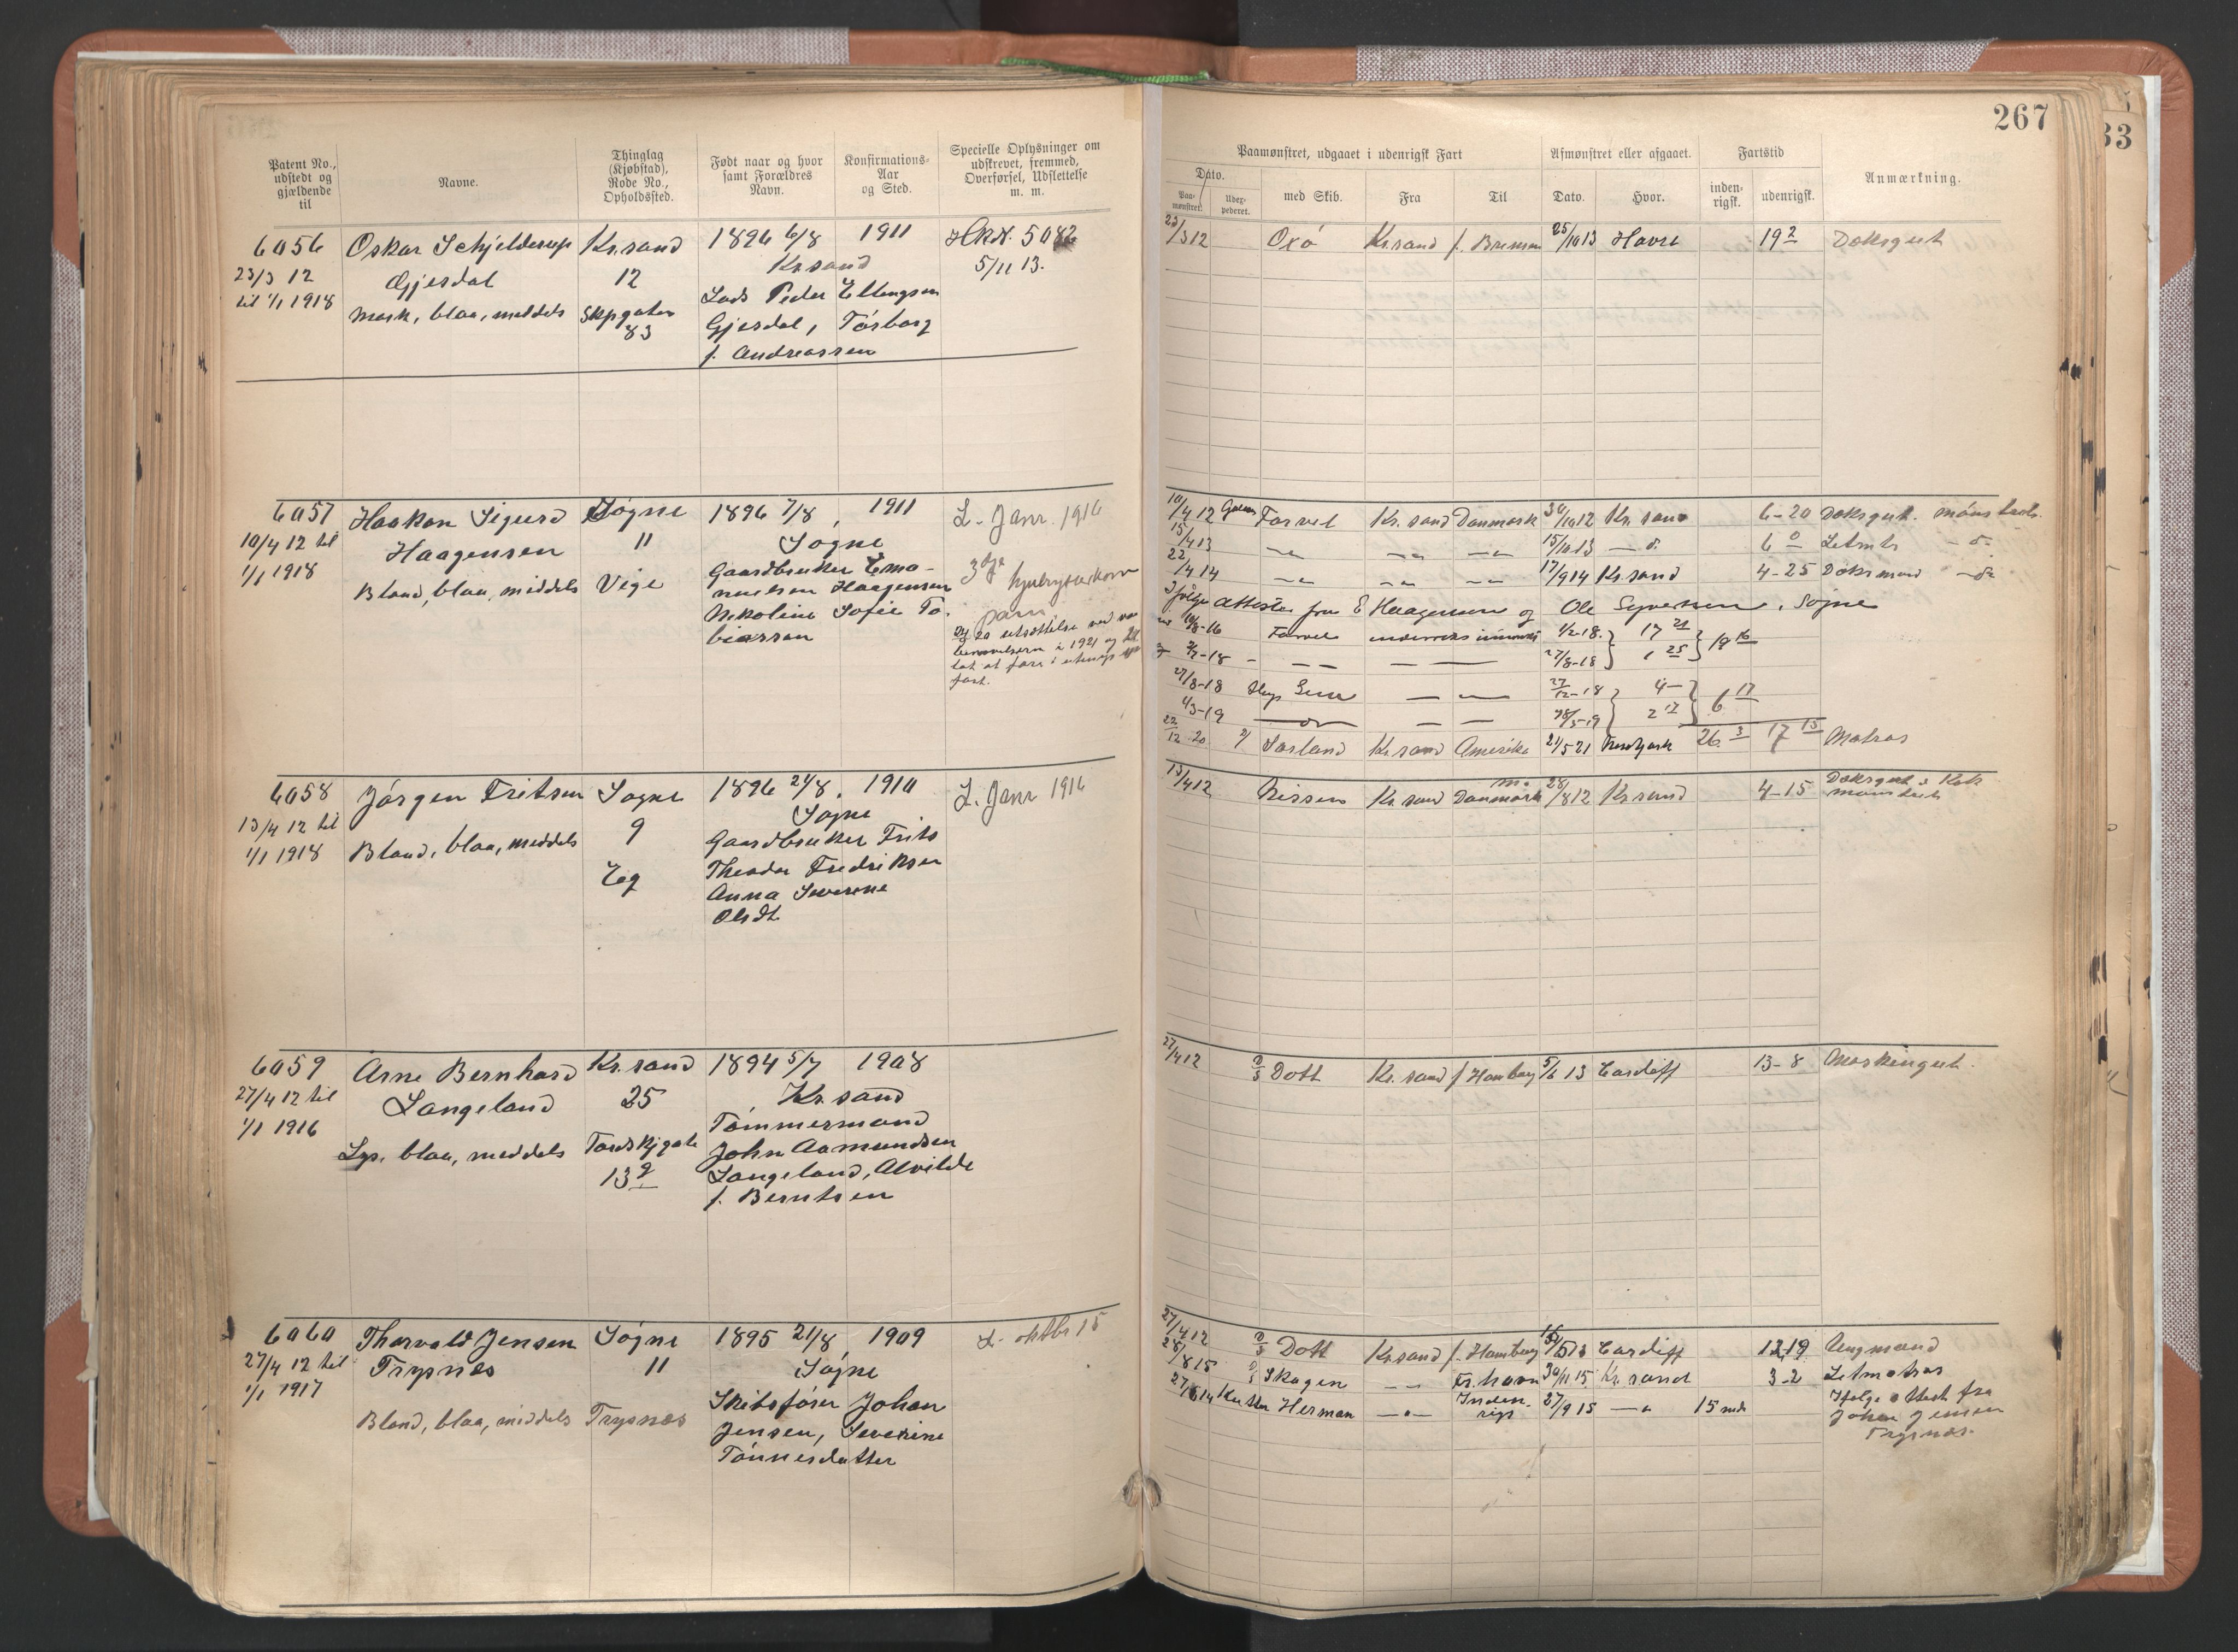 267
Patent No., udstedt og gjældende til
Navne.
Thinglag (Kjøbstad), Rode No., Opholdssted.
Født naar og hvor samt Forældres Navn.
Konfirmations-Aar og Sted.
Specielle Oplysninger om udskrevet, fremmed, Overførsel, Udslettelse m. m.
Paamønstret, udgaaet i udenrigsk Fart
Afmønstret eller afgaaet.
Fartstid
Anmærkning.
Dato.
Paamønstret.
med Skib.
Fra
Til
Dato.
Hvor.
indenrigsk.
udenrigsk.
6056 Oskar Schjelderup Kr.sand 1896 6/8 1911
23/3 12 Gjesdal 12 Kr.sand 5/11 13.
til 1/1 1918 mørk, blaa, middels Skpgaten 83
Peder Ellengsen
Gjesdal, Tørborg
f. Andreassen
23/3 12 Oxö Kr.sand f. Bremen 25/10 13 Havre 19 2 Dæksgut
6057 Haakon Sigurd Søgne 1896 7/8, 1911 L. Janr. 1916
10/4 12 til Haagensen 11 Søgne
1/1 1918 Blond, blaa, middels Vige
Gaardbruker Ema-
nuelsen Haagensen
Nikoline Sofie To-
biassen
10/4 12 Farvel Kr.sand Danmark 30/10 12 Kr.sand 6-20 Dæksgut.
15/4 13 15/10 13 6 0 Letmts
22/4 14 17/9 14 Kr.sand 4-25 Dæksmand
Ifølge attester fra E Haagensen og Ole Syversen, Søgne
Farvel 1/2-18. 17 21
27/8-18 1 25
27/8-18 27/12-18 4-
4/3-19 2 17 6 17
22/12 20 Sørland Kr.sand Amerika 21/5 21 New York 26 3 17 15 Matros
6058 Jørgen Fritsen Søgne 1896 24/8. 1910 L. Janr 1916
13/4 12 til 9 Søgne
1/1 1918 Blond, blaa, middels
Eeg
Gaardbruker Frits
Theodor Fredriksen
Anna Severine
Olsdt.
13/4 12 Nissen Kr.sand Danmark 28/8 12 Kr.sand 4-15 Dæksgut & Kok
6059 Arne Bernhard Kr.sand 1894 5/7 1908
27/4 12 til Langeland 25 Kr.sand
1/1 1916
Lys, blaa, middels
Tømmermand
John Aamundsen
Langeland, Alvilde
f. Berntsen
27/4 12 D/S Dott Kr.sand f. Hamburg 5/6 13 Cardiff 13-8 Maskingut.
6060 Thorvald Jensen Søgne 1895 21/8 1909 L. oktbr 15
27/4 12 til Trysnes 11 Søgne
1/1 1917
Blond, blaa, middels Trysnæs
Skibsfører Johan
Jensen, Severine
Tønnesdatter
27/4 12 D/S Dott Kr.sand f. Hamburg Cardiff Ungmand
28/8 15 D/S Skagen Fr.havn 30/11 15 Kr.sand 3-2 Letmatros
Kutter Herman Inden-
rigs 27/9 15 15 mdr
Ifølge attest fra
Johan Jensen
Trysnæs.